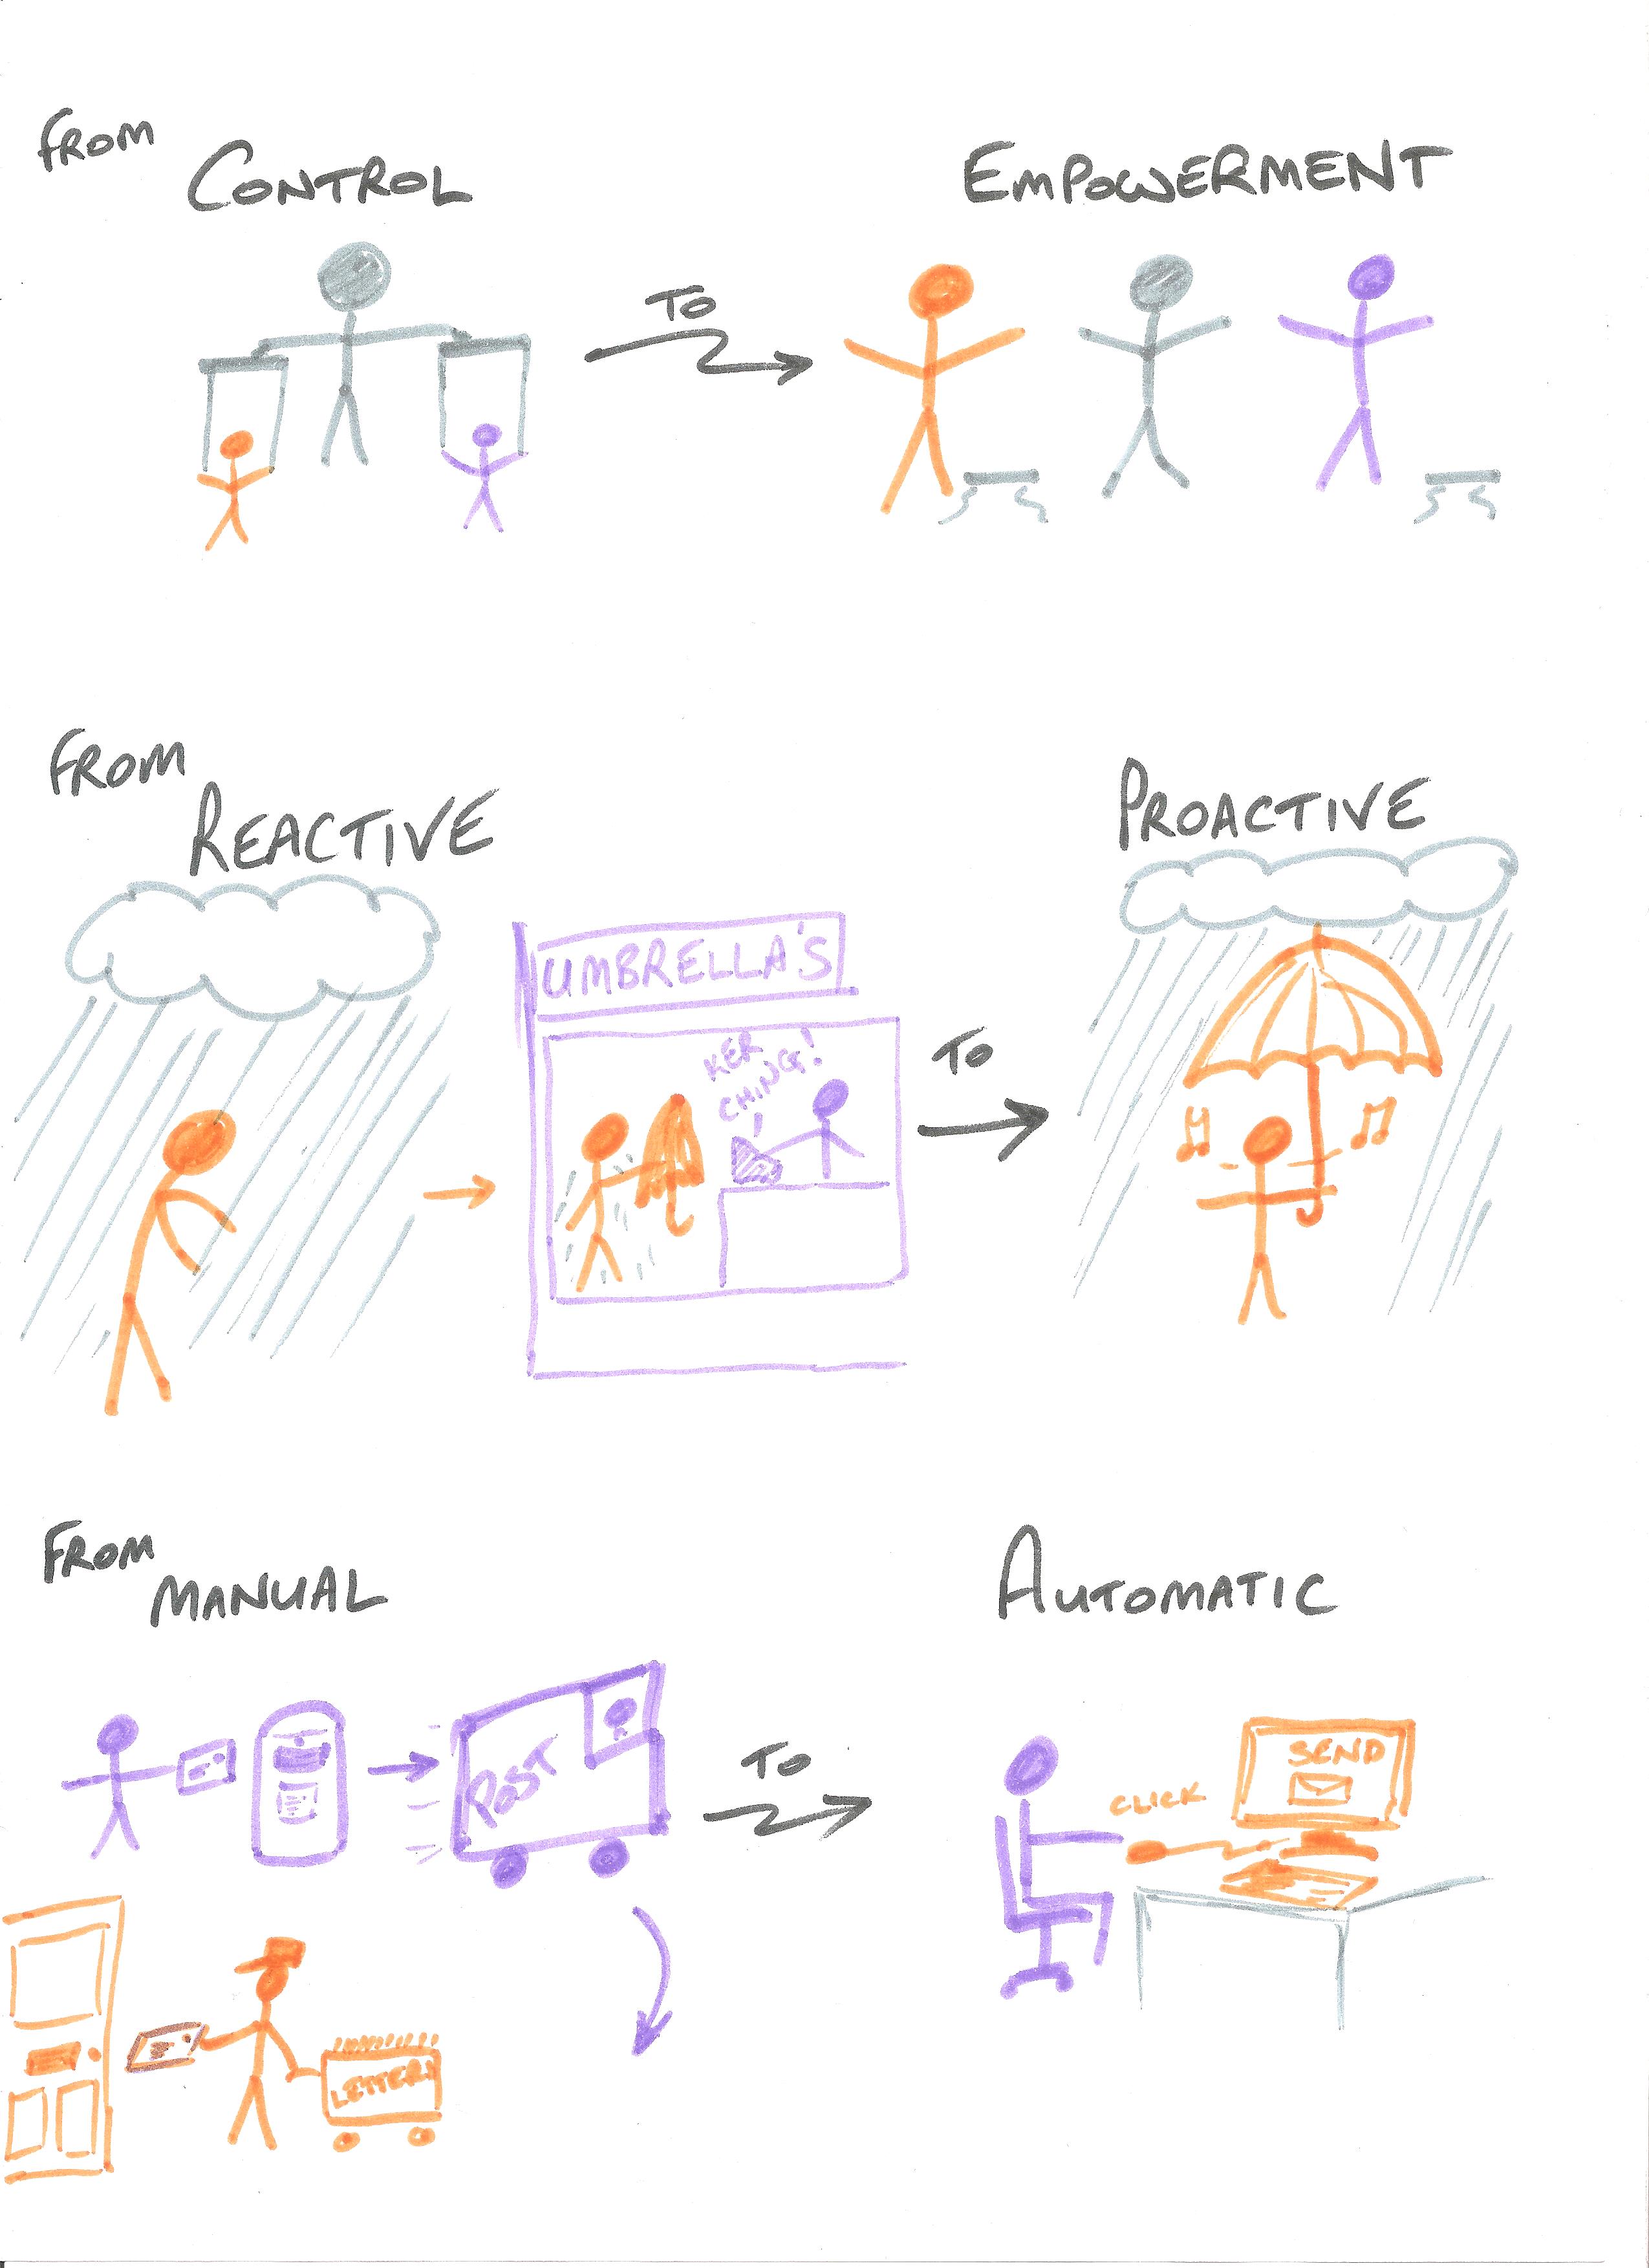 FROM
CONTROL
TO
EMPOWERMENT
FROM
REACTIVE
UMBRELLA'S
KER
CHING!
TO
PROACTIVE
FROM
MANUAL
POST
LETTERS
TO
AUTOMATIC
CLICK
SEND